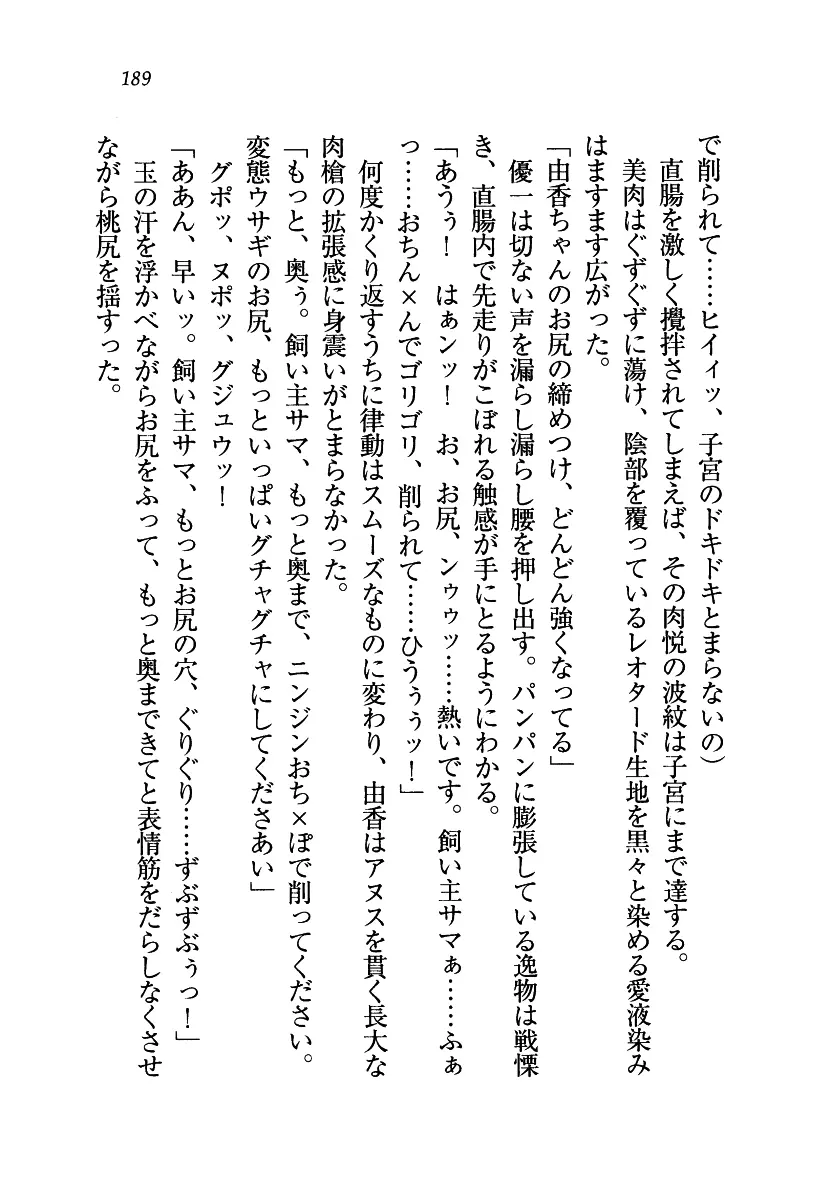 189
で削られて……ヒイィッ、子宮のドキドキとまらないの）
　直腸を激しく攪拌されてしまえば、その肉悦の波紋は子宮にまで達する。
　美肉はぐずぐずに蕩け、陰部を覆っているレオタード生地を黒々と染める愛液染み
はますます広がった。
「由香ちゃんのお尻の締めつけ、どんどん強くなってる」
　優一は切ない声を漏らし漏らし腰を押し出す。パンパンに膨張している逸物は戦慄
き、直腸内で先走りがこぼれる触感が手にとるようにわかる。
「あうぅ！　はぁンッ！　お、お尻、ンゥゥッ……熱いです。飼い主サマぁ……ふぁ
っ……おちん×んでゴリゴリ、削られて……ひうぅぅッ！」
　何度かくり返すうちに律動はスムーズなものに変わり、由香はアヌスを貫く長大な
肉槍の拡張感に身震いがとまらなかった。
「もっと、奥ぅ。飼い主サマ、もっと奥まで、ニンジンおち×ぽで削ってください。
変態ウサギのお尻、もっといっぱいグチャグチャにしてくださあい」
　グポッ、ヌポッ、グジュウッ！
「ああん、早いッ。飼い主サマ、もっとお尻の穴、ぐりぐり……ずぶずぶぅっ！」
　玉の汗を浮かべながらお尻をふって、もっと奥まできてと表情筋をだらしなくさせ
ながら桃尻を揺すった。